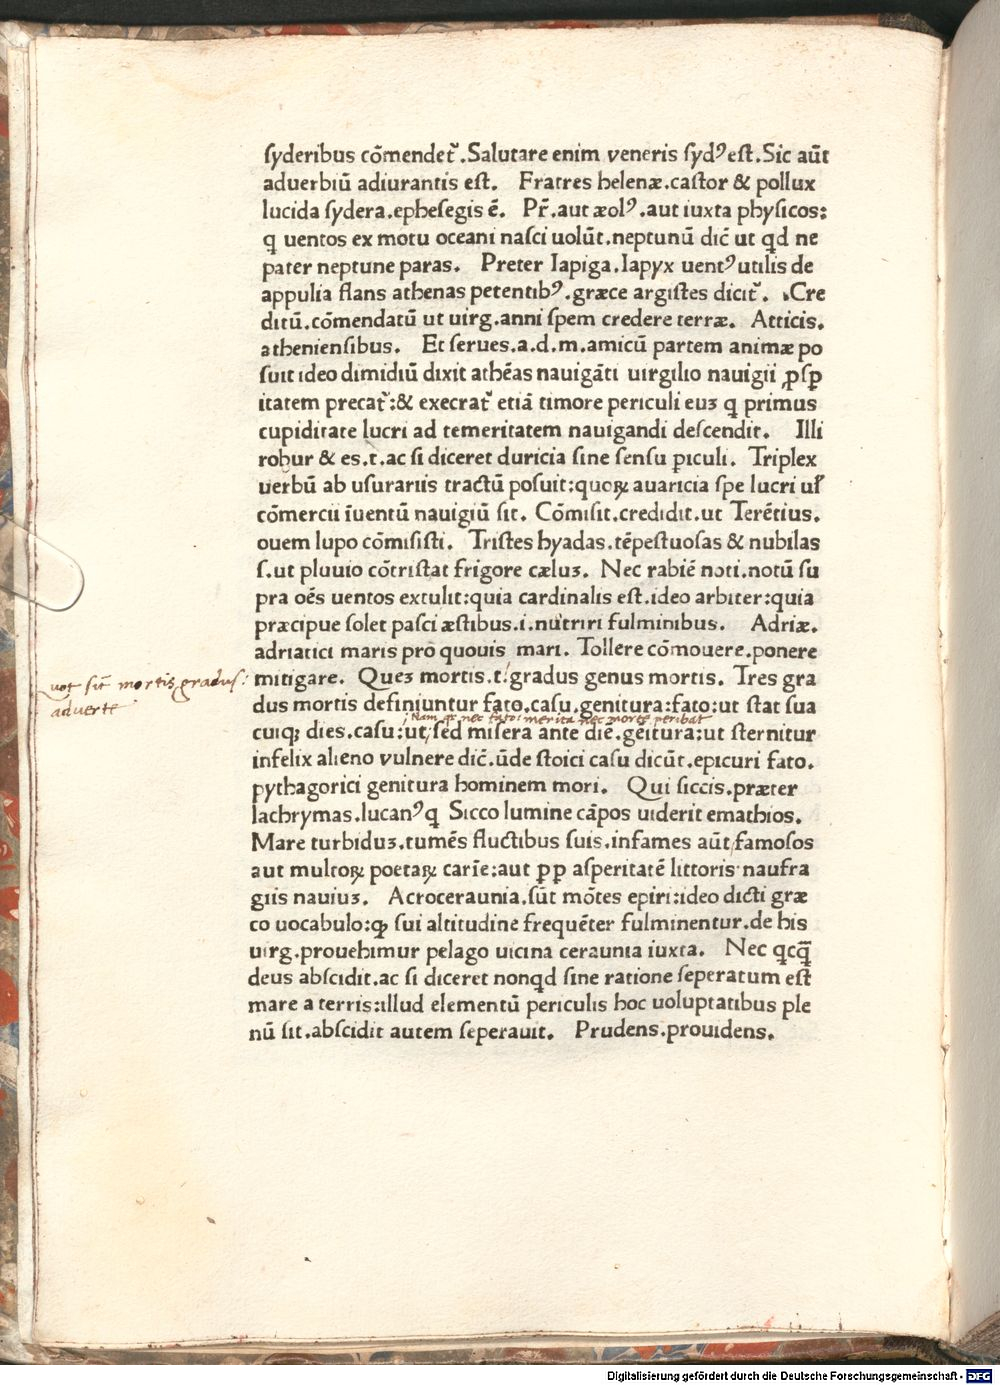 ſyderibus cōmendetᷣ.Salutare enim veneris ſydꝰ eſt.Sic aūt
aduerbiū adiurantis eſt. Fratres helenæ.caſtor & pollux
lucida ſydera.epheſegis ē. Pr̄.aut æolꝰ.aut iuxta phyſicos:
q uentos ex motu oceani naſci uolūt.neptunū dic̄ ut qd ne
pater neptune paras. Preter Iapiga.Iapyx uentꝰ utilis de
appulia flans athenas petentibꝰ.græce argiſtes dicitᷣ. Cre
ditū.cōmendatū ut uirg.anni ſpem credere terræ. Atticis.
athenienſibus. Et ſerues.a.d.m.amicū partem animæ po
ſuit ideo dimidiū dixit athēas nauigāti uirgilio nauigii ꝓſꝑ
itatem precatᷣ:& execratᷣ etiā timore periculi euꝫ q primus
cupiditate lucri ad temeritatem nauigandi deſcendit. Illi
robur & es.t.ac ſi diceret duricia ſine ſenſu piculi. Triplex
uerbū ab uſurariis tractū poſuit:quoꝝ auaricia ſpe lucri uł
cōmercii īuentū nauigiū ſit. Cōmiſit.credidit.ut Terētius.
ouem lupo cōmiſiſti. Triſtes hyadas.tēpeſtuoſas & nubilas
ſ.ut pluuio cōtriſtat frigore cæluꝫ. Nec rabiē noti.notū ſu
pra oēs uentos extulit:quia cardinalis eſt.ideo arbiter:quia
præcipue ſolet paſci æſtibus.i.nutriri fulminibus. Adriæ.
adriatici maris pro quouis mari. Tollere cōmouere.ponere
mitigare. Queꝫ mortis.t. gradus genus mortis. Tres gra
dus mortis definiuntur fato.caſu.genitura:fato:ut ſtat ſua
cuiqꝫ dies.caſu:ut ſed miſera ante diē.geitura:ut ſternitur
infelix alieno vulnere dic̄.ūde ſtoici caſu dicūt.epicuri fato.
pythagorici genitura hominem mori. Qui ſiccis.præter
lachrymas.lucanꝰ q Sicco lumine cāpos uiderit emathios.
Mare turbiduꝫ.tumēs fluctibus ſuis.infames aūt famoſos
aut multoꝝ poetaꝝ carīe:aut ꝓp aſperitatē littoris naufra
giis nauiuꝫ. Acroceraunia.ſūt mōtes epiri:ideo dicti græ
co uocabulo:ꝙ ſui altitudine frequēter fulminentur.de his
uirg.prouehimur pelago uicina ceraunia iuxta. Nec qcq̄
deus abſcidit.ac ſi diceret nonqd ſine ratione ſeperatum eſt
mare a terris:illud elementū periculis hoc uoluptatibus ple
nū ſit.abſcidit autem ſeperauit. Prudens.prouidens.
quot ſint mortis gradus:
aduerte
Nam quia nec fato: merita nec morte peribat
Digitalisierung gefördert durch die Deutsche Forschungsgemeinschaft - DFG